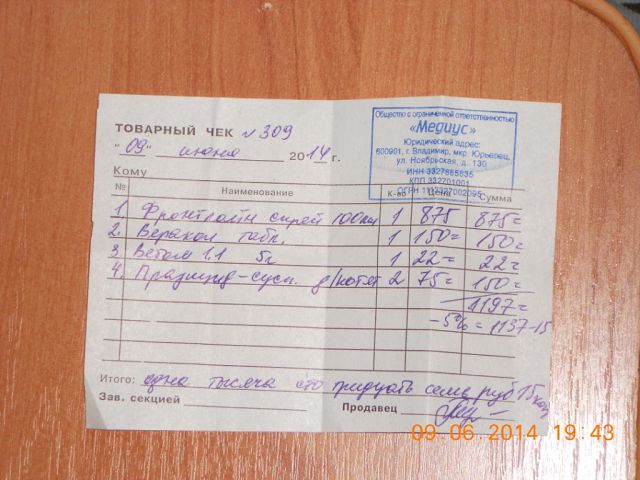 ТОВАРНЫЙ ЧЕК № 309
"09" июня 2014 г.
Кому
Общество с ограниченной ответственностью
«Медиус»
Юридический адрес:
600901, г. Владимир, мкр. Юрьевец,
ул. Ноябрьская, д. 130
ИНН 3327855635
КПП 332701001
ОГРН 1113327002095
№ Наименование К-во Цена Сумма
1. Фронтлайн спрей 100мл 1 875 875=
2. Веракол табл. 1 150= 150=
3. Ветом 1.1 5г 1 22= 22=
4. Празицид-сусп. д/котят 2 75= 150=
1197=
-5%= 1137-15
Итого: одна тысяча сто тридцать семь руб 15 коп
Зав. секцией
Продавец
09.06.2014 19:43